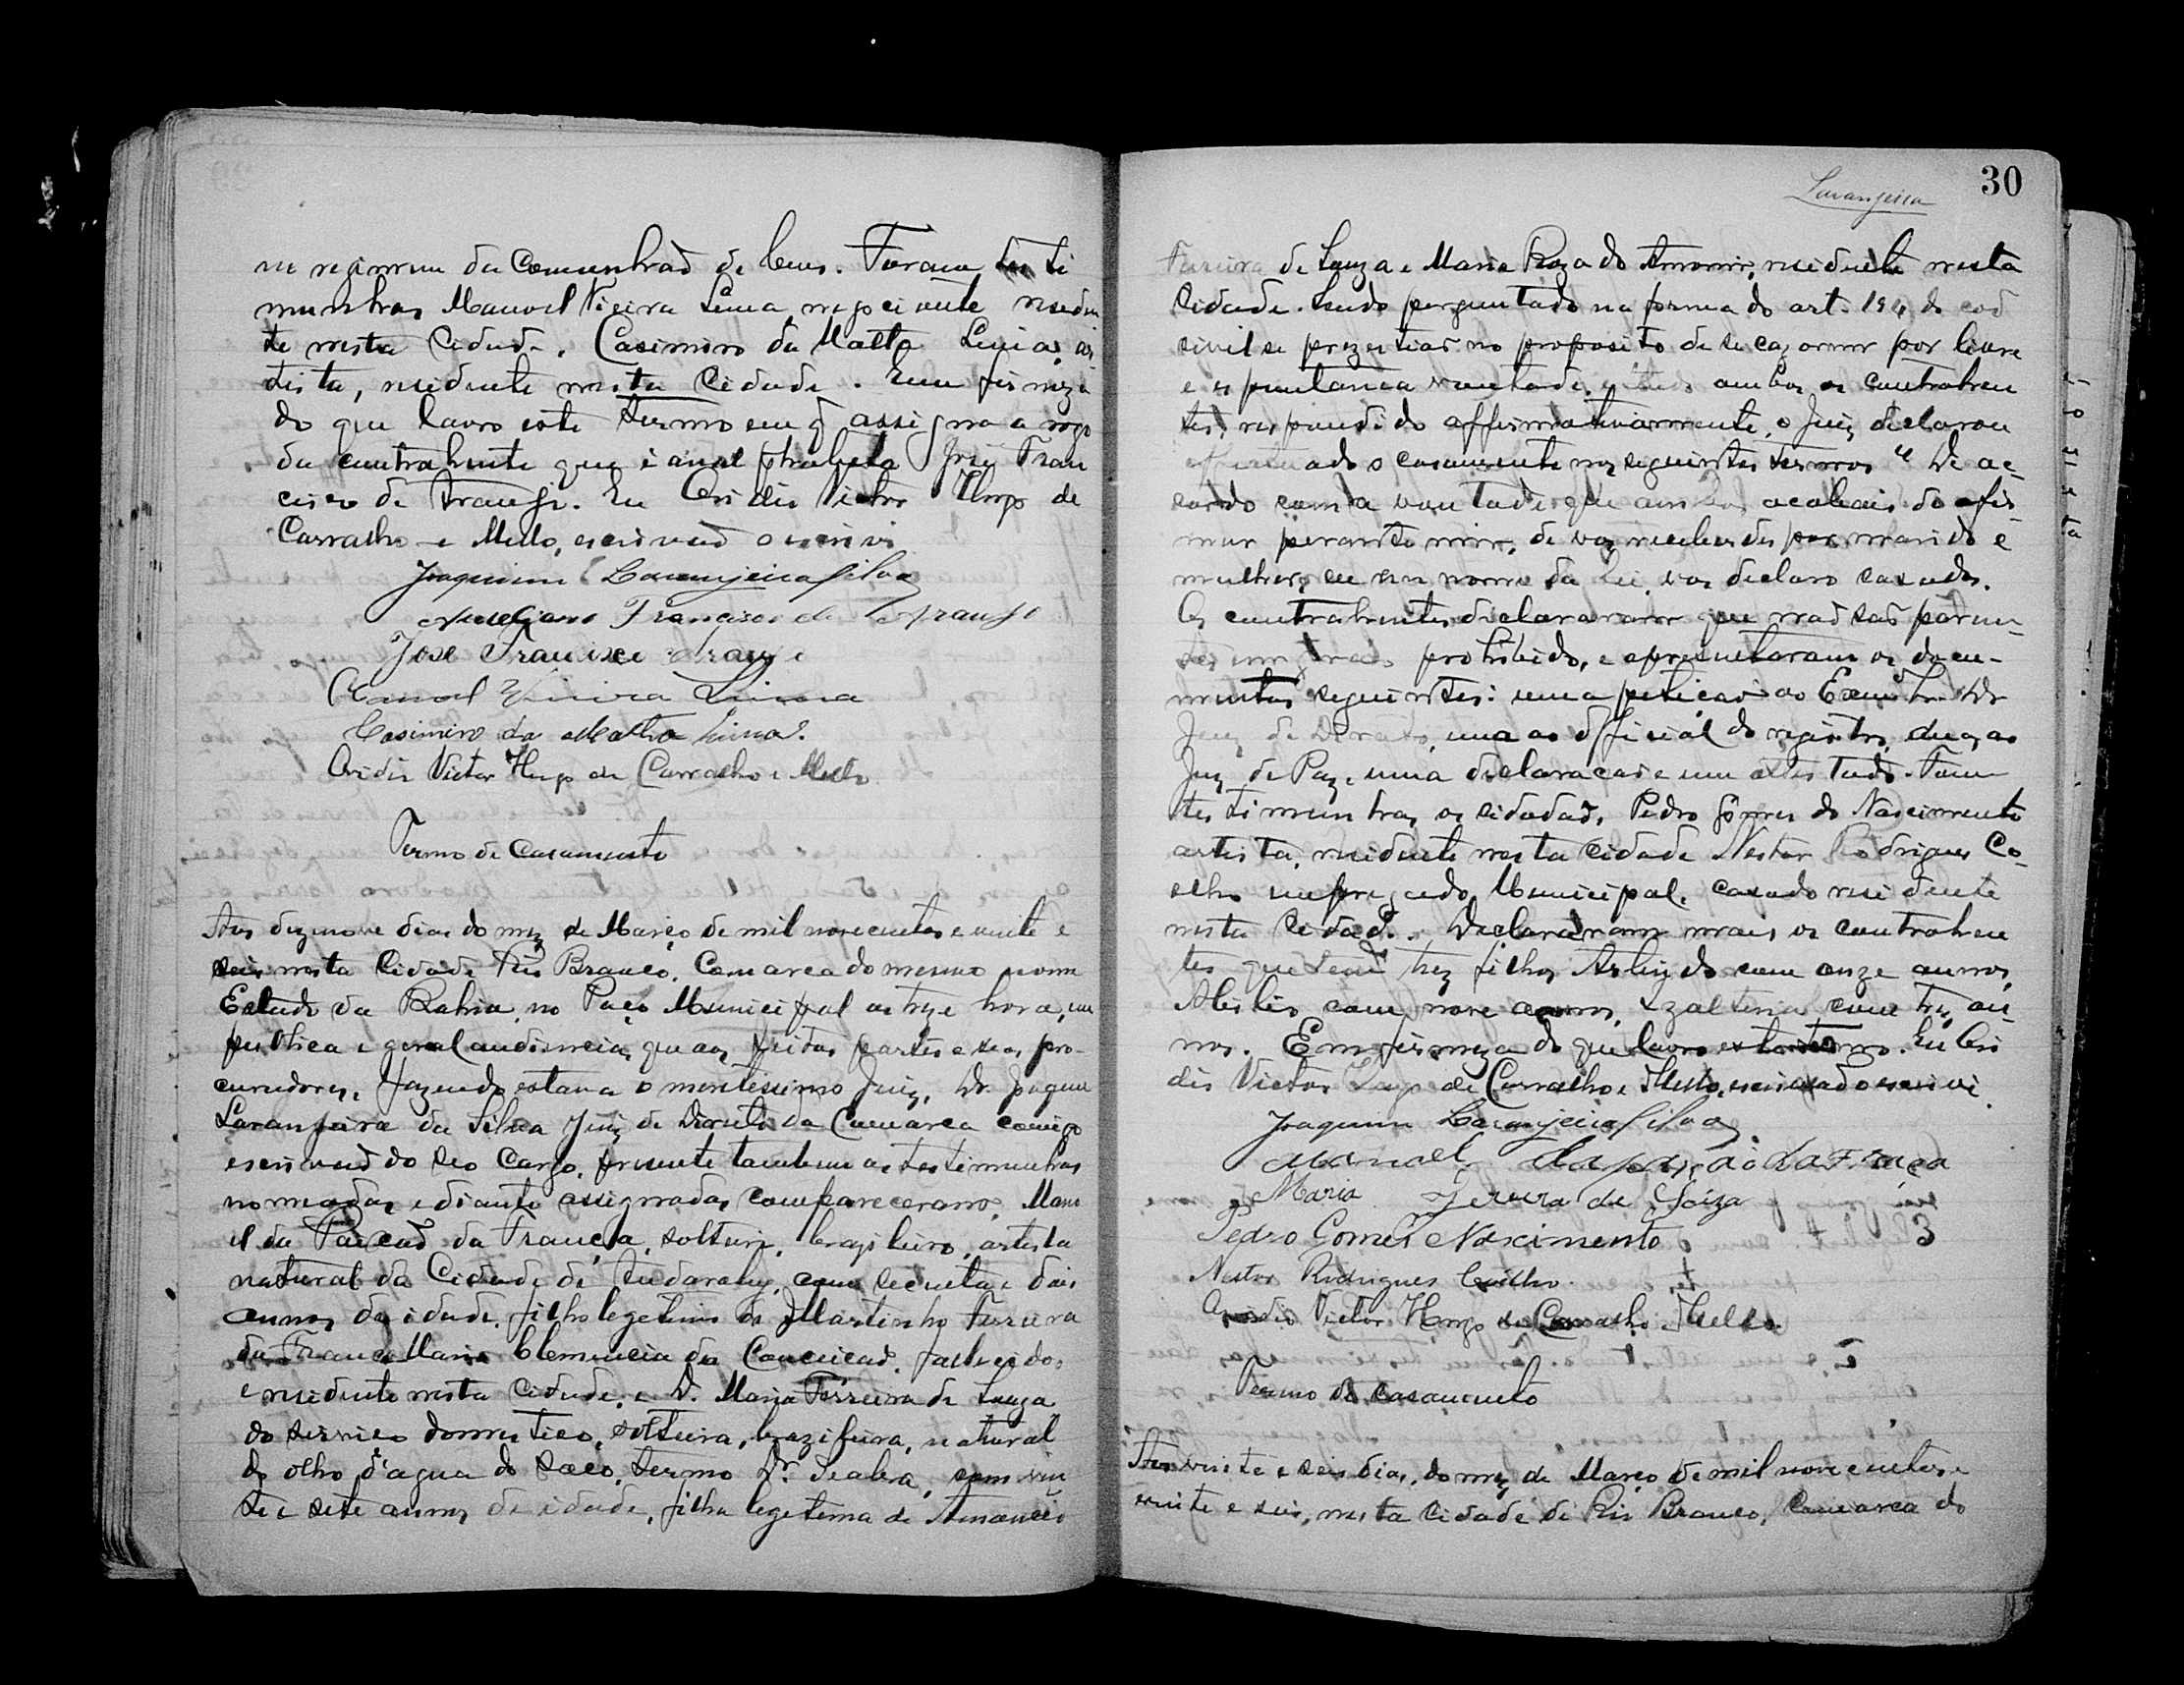 no regimem da Comunhaõ de bens. Foram testi
munhas Manoel Vieira Lima, negociante residen
te nesta Cidade. Casimiro da Matta Lima, ar
tista, residente nesta Cidade. Em firmeza
do que lavro este termo em q̃ assigna a rogo
da contrahente que é analphabeta José Fran
cisco de Araujo. Eu Ovidio Victor Hugo de
Carvalho e Mello, escrivaõ o escrivi
Joaquim Laranjeira Silva
Francisco de Araujo
José Francisco Araujo
Manoel Vieira Lima
Casimiro da Matta Lima.
Ovidio Victor Hugo de Carvalho e Mello
Termo de Casamento
Aos dezenove dias do mez de Março de mil novecentos e vinte e
seis nesta Cidade Rio Branco, Comarca do mesmo nome
Estado da Bahia, no Paço Municipal as treze hora, em
publica e geral audiencia, que aos feitos partes e seos pro-
curadores, fazendo estava o meretissimo Juiz, Dr. Joaquim
Laranjeira da Silva Juiz de Direito da Comarca comigo
escrivaõ do seo Cargo, presente tambem as testimunhas
nomeadas e diante assignadas compareceram, Mano
el da Paixaõ da França, solteiro, brazileiro, artista
natural da Cidade de, com secenta e dois
annos de idade, filho legetimo de Martinho Ferreira
da França Maria Clemencia da Conceicaõ, fallecidos,
e residente nesta Cidade, e D. Maria Ferreira de Souza
do servico domestico, solteira, brazileira, natural
do olho d'agua do Saco, termo Dr. Seabra, com vin
te e sete annos de idade, filha legetema de Amancio
30
Laranjeira
Ferreira de Souza e Maria Roza do Amorim, residente nesta
Cidade. Sendo perguntado na forma do art. 194 do cod
civil se prezestiaõ no proposito de se cazarem por livre
e espontanea vontade, e tendo ambos os contrahen
tes, respondido affirmativamente, o Juiz declarou
effectuado o casamento nos seguintes termos "De ac-
cordo com a vontade que ambos acabais de afir-
mar perante mim, de vos receberdes por marido e
mulher, eu em nome da Lei, vos declaro casados.
Os contrahentes declararam que naõ saõ paren-
tes em grao prohibido, e apresentaram os docu-
mentos seguintes: uma peticaõ ao Exmo Sr. Dr
Juiz de Direito, uma ao official do registro, duas ao
Juiz de Paz, uma declaracaõ e um attestado. Foram
testimunhas os cidadaõs Pedro Gomes do Nascimento
artista, residente nesta Cidade Nestor Rodrigues Co-
elho empregado Municipal, casado residente
nesta Cidade. Declararam mais os contrahen
tes que tem trez filhos Arlindo com onze annos,
com nove annos, com trez an-
nos. Em firmeza do que lavro este termo. Eu Ovi
dio Victor Hugo de Carvalho e Mello, escrivaõ o escrivi.
Joaquim Laranjeira Silva
Manoel da paixaõ da França
Maria Ferera de Soiza
Pedro Gomes Nascimento
Nestor Rodrigues Coêlho.
Ovidio Victor Hugo de Carvalho e Mello
Termo de casamento
Aos vinte e seis dias, do mez de Março de mil novecentos e
vinte e seis, nesta cidade de Rio Branco, Comarca do